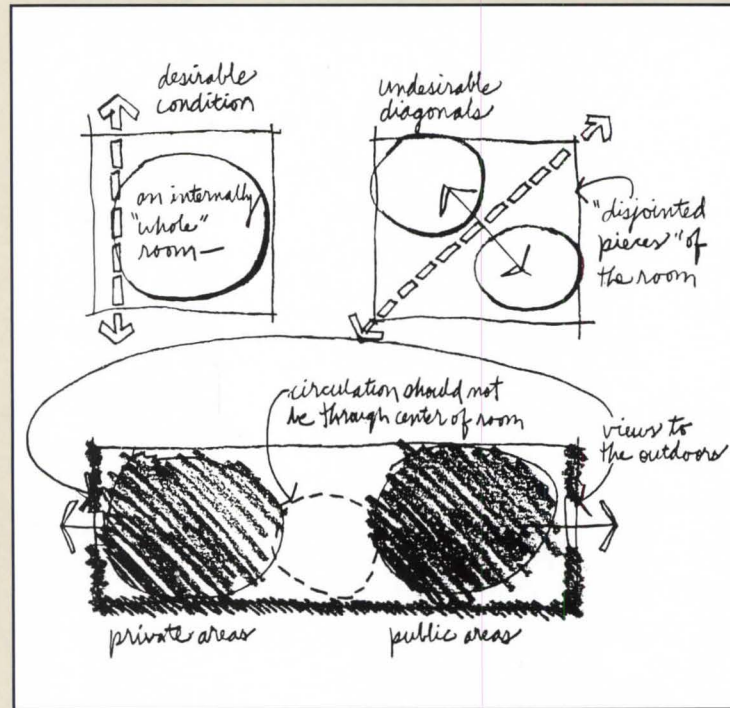 desirable
condition
an internally
"whole"
room—
undesirable
diagonals
"disjointed
pieces" of
the room
circulation should not
be through center of room
views to
the outdoors
private areas
public areas